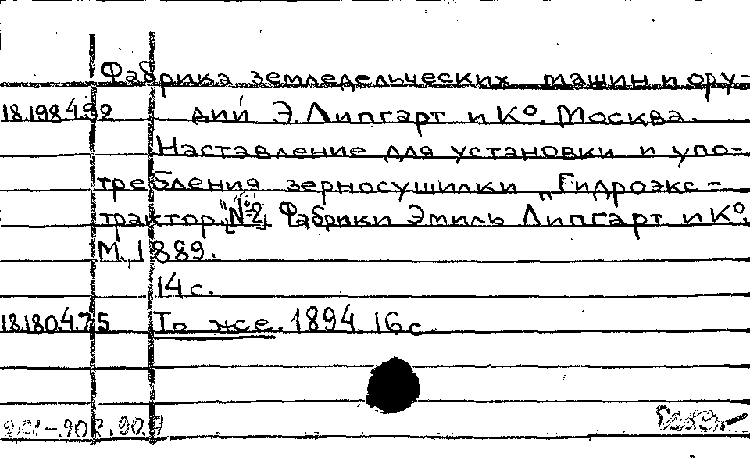 Фабрика земледельческих машин и ору-
18.198.4.92 дий Э. Липгарт и К°. Москва.
Наставление для установки и упо-
требления зерносушилки "Гидроэкс-
трактор" №2, Фабрики Эмиль Липгарт и К°.
М., 1889.
14 с.
18.180.4.75 То же. 1894. 16 с.